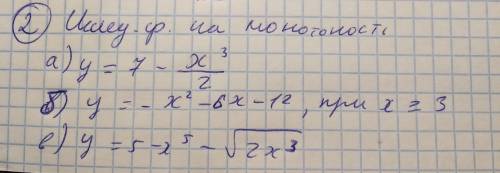 ② Исслед. ф. на монотоность
а) y = 7 - x³/2
б) y = - x² - 6x - 12, при x ≥ 3
в) y = 5 - x⁵ - √2x³